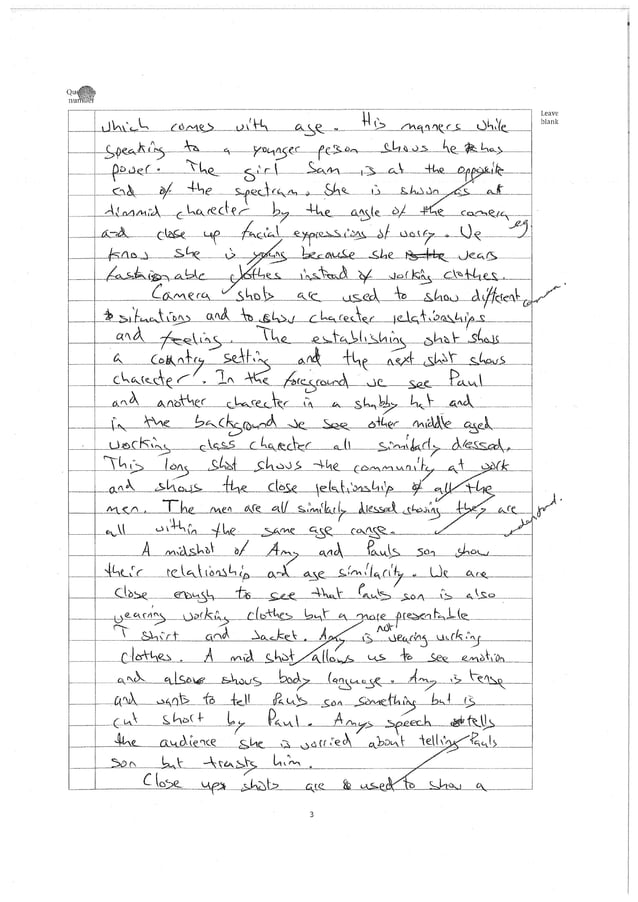 Question
number
Leave
blank
which comes with age. His manners while
speaking to a younger person shows he has
power. The girl Sam is at the opposite
end of the spectrum. She is shown as at
timmid charecter by the angle of the camera
eg.
and close up facial expressions of worry. We
know she is young because she wears
fashionable clothes instead of working clothes.
Camera shots are used to show different
situations and to show charecter relationships
and feeling. The establishing shot shows
a country setting and the next shot shows
charecter'. In the foreground we see Paul
and another charecter in a shabby hat and
in the background we see other middle aged
working class charecter all similarly dressed.
This long shot shows the community at work
and shows the close relationship of all the
men. The men are all similarly dressed showing they are
understand.
all within the same age range.
A midshot of Amy and Pauls son show
their relationship and age similarity. We are
close enough to see that Pauls son is also
wearing working clothes but a more presentable
T shirt and Jacket. Amy is not wearing working
clothes. A mid shot allows us to see emotion
and also shows body language. Amy is tense
and wants to tell Pauls son something but is
cut short by Paul. Amys speech tells
the audience she is worried about telling Pauls
son but trusts him.
Close up shots are used to show a
3